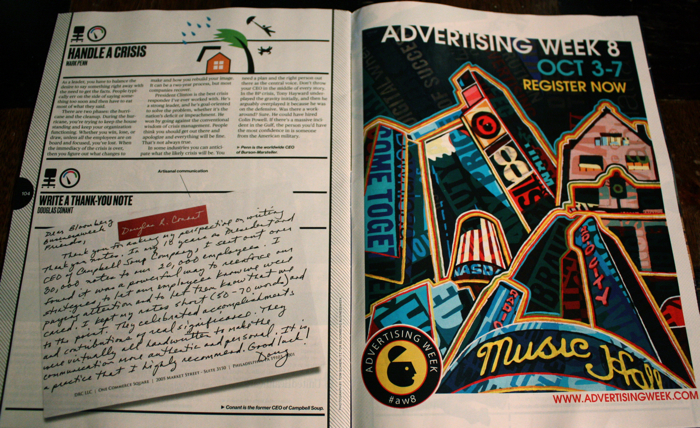 HANDLE A CRISIS
MARK PENN
As a leader, you have to balance the
desire to say something right away with
the need to get the facts. People typi-
cally err on the side of saying some-
thing too soon and then have to eat
most of what they said.
There are two phases: the hurri-
cane and the cleanup. During the hur-
ricane, you're trying to keep the house
standing and keep your organization
functioning. Whether you win, lose, or
draw, unless all the employees are on
board and focused, you've lost. When
the immediacy of the crisis is over,
then you figure out what changes to
make and how you rebuild your image.
It can be a two-year process, but most
companies recover.
President Clinton is the best crisis
responder I've ever worked with. He's
a strong leader, and he's goal-oriented
to solve the problem, whether it's the
nation's deficit or impeachment. He
won by going against the conventional
wisdom of crisis management. People
think you should get out there and
apologize and everything will be fine.
That's not always true.
In some industries you can antici-
pate what the likely crisis will be. You
need a plan and the right person out
there as the central voice. Don't throw
your CEO in the middle of every story.
In the BP crisis, Tony Hayward under-
played the gravity initially, and then he
arguably overplayed it because he was
on the defensive. Was there a work-
around? Sure. He could have hired
Colin Powell. If there's a massive inci-
dent in the Gulf, the person you'd have
the most confidence in is someone
from the American military.
▶ Penn is the worldwide CEO
of Burson-Marsteller.
104
Artisanal communication
WRITE A THANK-YOU NOTE
DOUGLAS CONANT
Douglas R. Conant
Dear Bloomberg
Businessweek
Friends,
Thank you for asking my perspective on writing
thank you notes. In my 10 years as President and
CEO of Campbell Soup Company, I sent out over
30,000 notes to our 20,000 employees. I
found it was a powerful way to reinforce our
strategies, to let our employees know we were
paying attention and to let them know that we
cared. I kept my notes short (50-70 words) and
to the point. They celebrated accomplishments
and contributions of real significance. They
were virtually all handwritten to make the
communication more authentic and personal. It is
a practice that I highly recommend. Good luck!
Doug
DRC LLC | One Commerce Square | 2005 Market Street - Suite 3150 | Philadelphia,
▶ Conant is the former CEO of Campbell Soup.
ADVERTISING WEEK 8
OCT 3-7
REGISTER NOW
COME TOGE
NASD
RADIO
CITY
Music Hall
ADVERTISING WEEK
#aw8
WWW.ADVERTISINGWEEK.COM